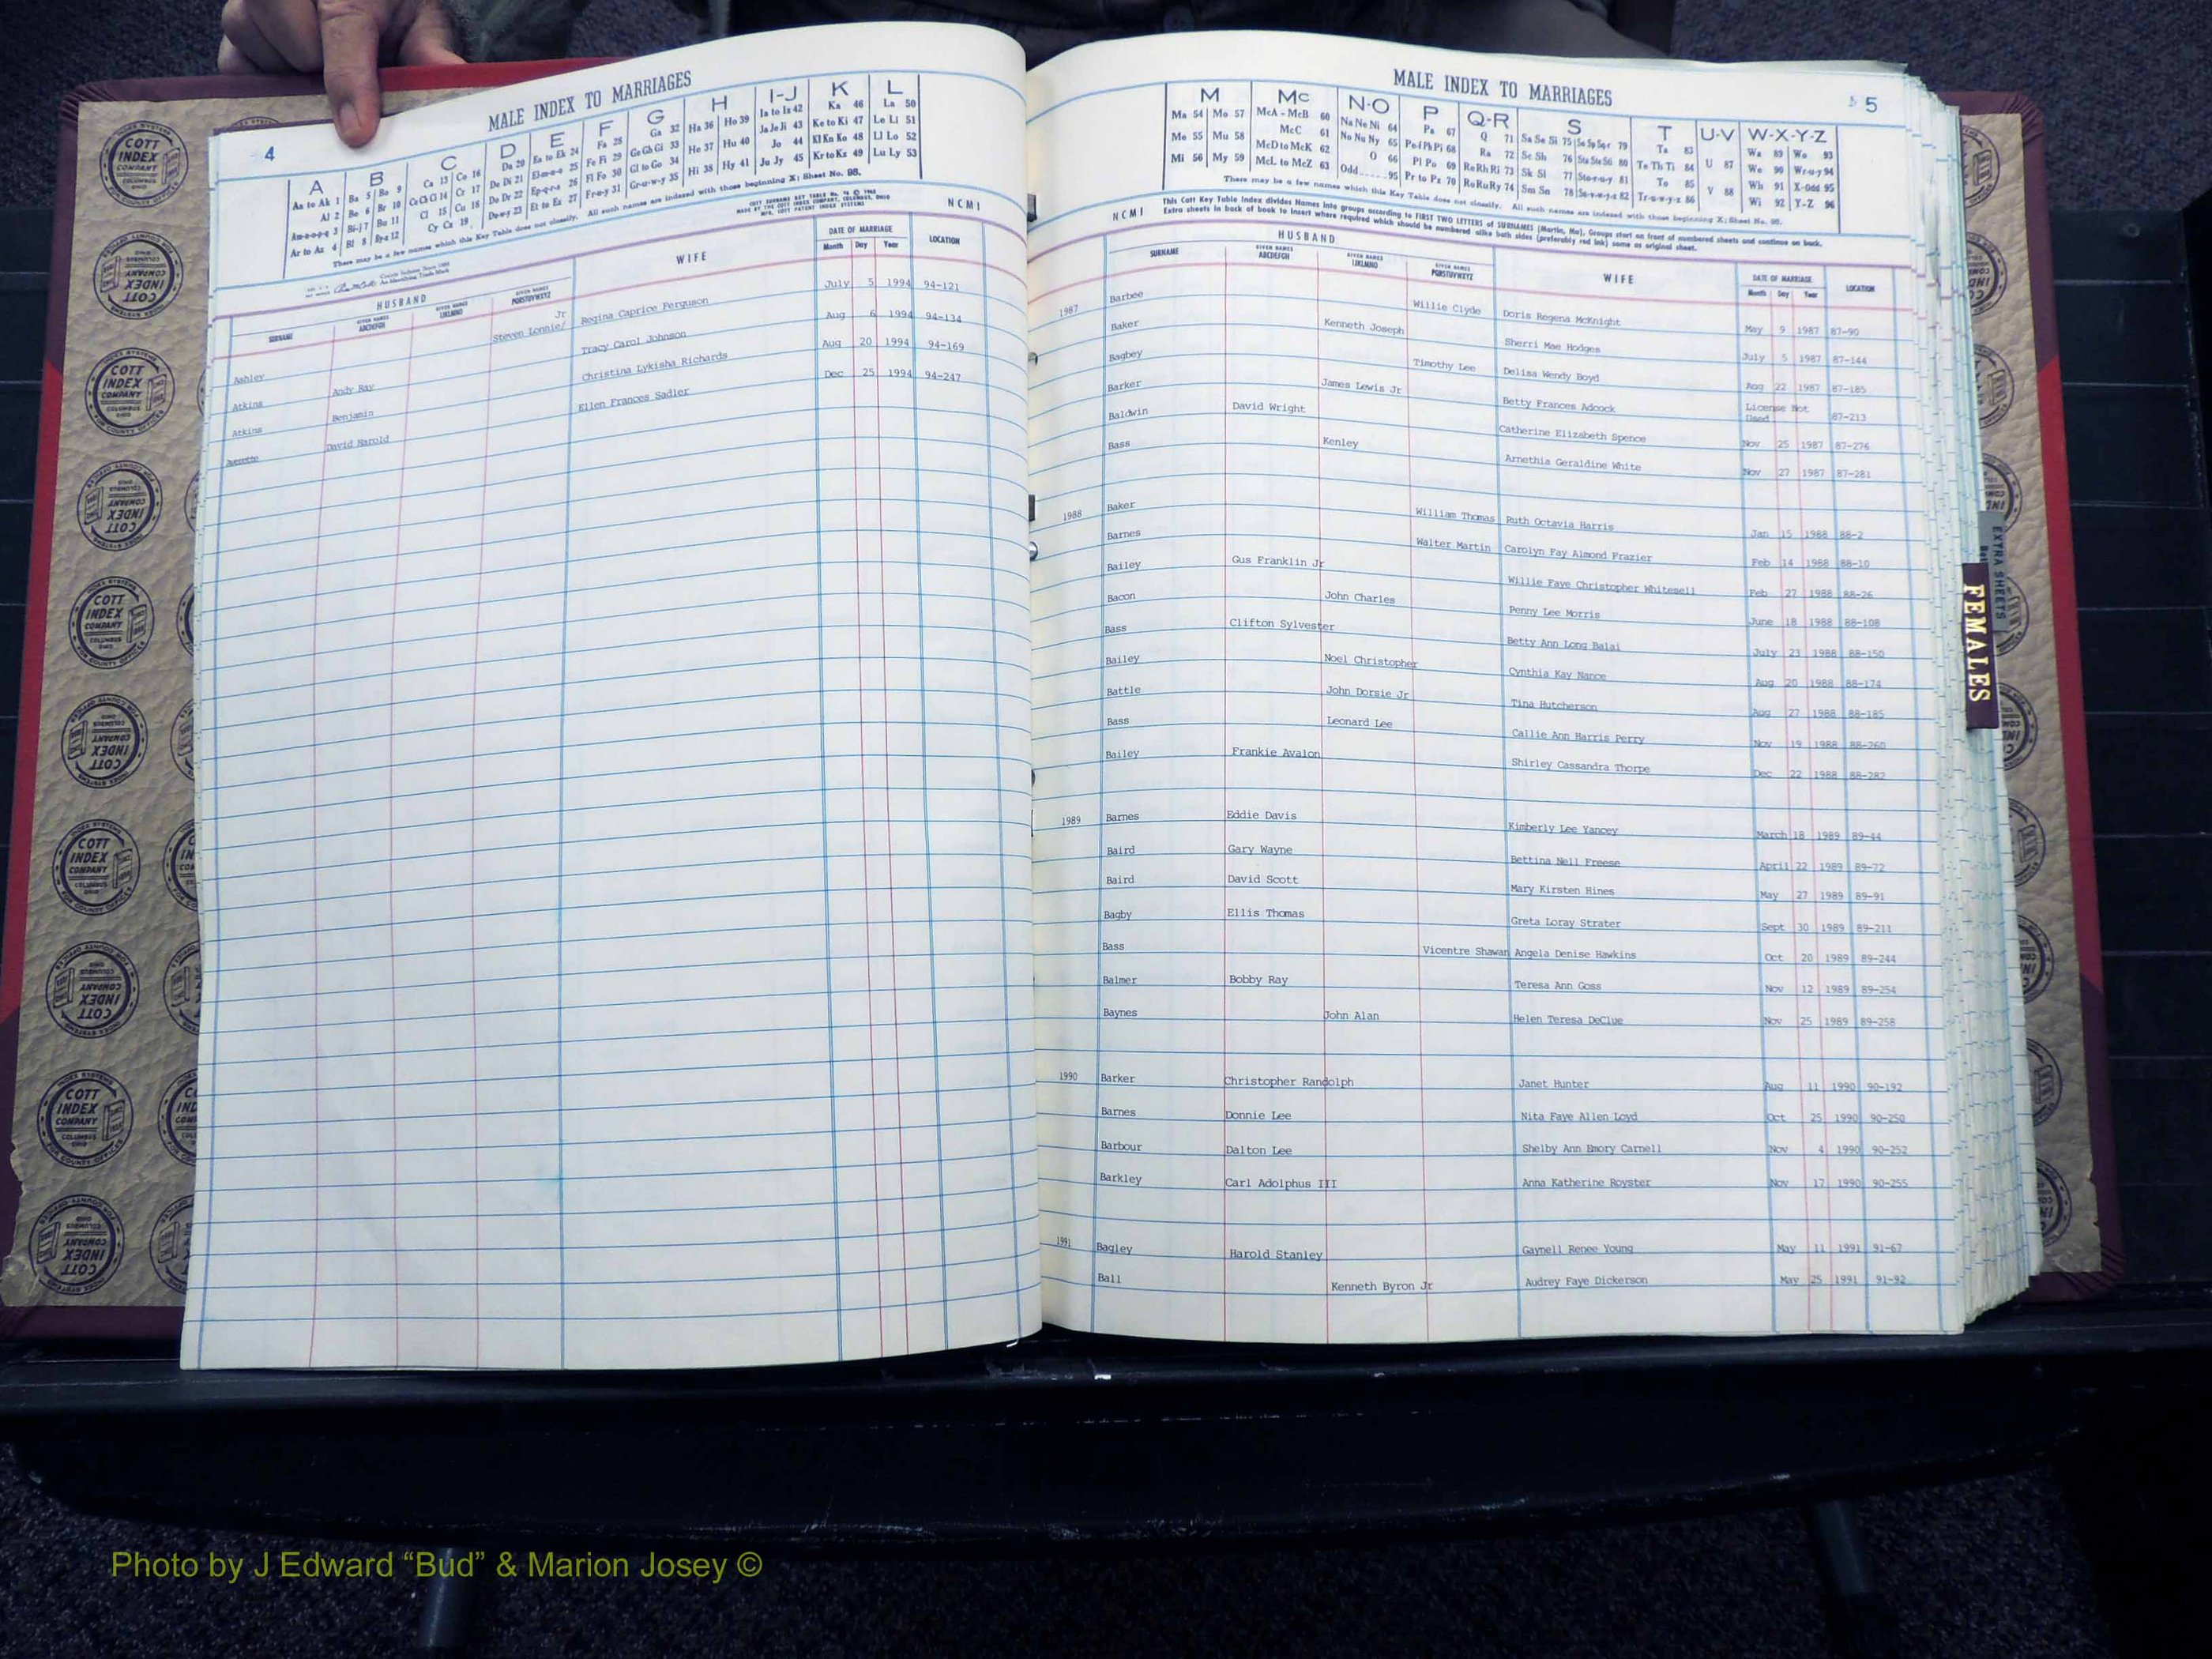 4
MALE INDEX TO MARRIAGES
A B C D E F G H I-J K L
Aa to Ak 1 Ba 5 Bo 9 Ca 13 Co 16 Da 20 Ea to Ek 24 Fa 28 Ga 32 Ha 36 Ho 39 Ia to Iz 42 Ka 46 La 50
Al 2 Be 6 Br 10 Ce Ch Ci 14 Cr 17 De Di 21 El-m-n-o 25 Fe Fi 29 Ge Gh Gi 33 He 37 Hu 40 Ja Je Ji 43 Ke to Ki 47 Le Li 51
Am-n-o-p-q 3 Bi-j 7 Bu 11 Cl 15 Cu 18 Do Dr 22 Ep-q-r-s 26 Fl Fo 30 Gl to Go 34 Hi 38 Hy 41 Jo 44 Kl Kn Ko 48 Ll Lo 52
Ar to Az 4 Bl 8 By-z 12 Cy Cz 19 Du-w-y 23 Et to Ez 27 Fr-u-y 31 Gr-u-w-y 35 Ju Jy 45 Kr to Kz 49 Lu Ly 53
There may be a few names which this Key Table does not classify. All such names are indexed with those beginning X; Sheet No. 95.
NCMI
HUSBAND WIFE DATE OF MARRIAGE LOCATION
SURNAME GIVEN NAMES ABCDEFGH GIVEN NAMES IJKLMNO GIVEN NAMES PQRSTUVWXYZ Month Day Year
Ashley Steven Lonnie/ Jr Regina Caprice Ferguson July 5 1994 94-121
Atkins Andy Ray Tracy Carol Johnson Aug 6 1994 94-134
Atkins Benjamin Christina Lykisha Richards Aug 20 1994 94-169
Averette David Harold Ellen Frances Sadler Dec 25 1994 94-247
MALE INDEX TO MARRIAGES
5
M Mc N-O P Q-R S T U-V W-X-Y-Z
Ma 54 Mo 57 McA - McB 60 Na Ne Ni 64 Pa 67 Q 71 Sa Se Si 75 So Sp Sq-r 79 Ta 83 Wa 89 Wo 93
Me 55 Mu 58 McC 61 No Nu Ny 65 Pe Pf Ph Pi 68 Ra 72 Sc Sh 76 Sta Ste S6 80 Te Th Ti 84 U 87 We 90 Wr-u-y 94
Mi 56 My 59 McD to McK 62 O 66 Pl Po 69 Re Rh Ri 73 Sk Sl 77 Sto-r-u-y 81 To 85 Wh 91 X-Odd 95
McL to McZ 63 Odd 95 Pr to Pz 70 Ro Ru Ry 74 Sm Sn 78 Su-v-w-y-z 82 Tr-u-w-y-z 86 V 88 Wi 92 Y-Z 96
There may be a few names which this Key Table does not classify. All such names are indexed with those beginning X; Sheet No. 95.
NCMI This Cott Key Table Index divides Names into groups according to FIRST TWO LETTERS of SURNAMES (Martin, Ma), Groups start on front of numbered sheets and continue on back.
Extra sheets in back of book to insert where required which should be numbered alike both sides (preferably red ink) same as original sheet.
HUSBAND WIFE DATE OF MARRIAGE LOCATION
SURNAME GIVEN NAMES ABCDEFGH GIVEN NAMES IJKLMNO GIVEN NAMES PQRSTUVWXYZ Month Day Year
1987 Barbee Willie Clyde Doris Regena McKnight May 9 1987 87-90
Baker Kenneth Joseph Sherri Mae Hodges July 5 1987 87-144
Bagbey Timothy Lee Delisa Wendy Boyd Aug 22 1987 87-185
Barker James Lewis Jr Betty Frances Adcock License Not Used 87-213
Baldwin David Wright Catherine Elizabeth Spence Nov 25 1987 87-276
Bass Kenley Arnethia Geraldine White Nov 27 1987 87-281
1988 Baker William Thomas Ruth Octavia Harris Jan 15 1988 88-2
Barnes Walter Martin Carolyn Fay Almond Frazier Feb 14 1988 88-10
Bailey Gus Franklin Jr Willie Faye Christopher Whitesell Feb 27 1988 88-26
Bacon John Charles Penny Lee Morris June 18 1988 88-108
Bass Clifton Sylvester Betty Ann Long Balai July 23 1988 88-150
Bailey Noel Christopher Cynthia Kay Nance Aug 20 1988 88-174
Battle John Dorsie Jr Tina Hutcherson Aug 27 1988 88-185
Bass Leonard Lee Callie Ann Harris Perry Nov 19 1988 88-260
Bailey Frankie Avalon Shirley Cassandra Thorpe Dec 22 1988 88-282
1989 Barnes Eddie Davis Kimberly Lee Yancey March 18 1989 89-44
Baird Gary Wayne Bettina Nell Freese April 22 1989 89-72
Baird David Scott Mary Kirsten Hines May 27 1989 89-91
Bagby Ellis Thomas Greta Loray Strater Sept 30 1989 89-211
Bass Vicentre Shawan Angela Denise Hawkins Oct 20 1989 89-244
Balmer Bobby Ray Teresa Ann Goss Nov 12 1989 89-254
Baynes John Alan Helen Teresa DeClue Nov 25 1989 89-258
1990 Barker Christopher Randolph Janet Hunter Aug 11 1990 90-192
Barnes Donnie Lee Nita Faye Allen Loyd Oct 25 1990 90-250
Barbour Dalton Lee Shelby Ann Emory Carnell Nov 4 1990 90-252
Barkley Carl Adolphus III Anna Katherine Royster Nov 17 1990 90-255
1991 Bagley Harold Stanley Gaynell Renee Young May 11 1991 91-67
Ball Kenneth Byron Jr Audrey Faye Dickerson May 25 1991 91-92
EXTRA SHEETS
FEMALES
COTT INDEX COMPANY
Photo by J Edward “Bud” & Marion Josey ©